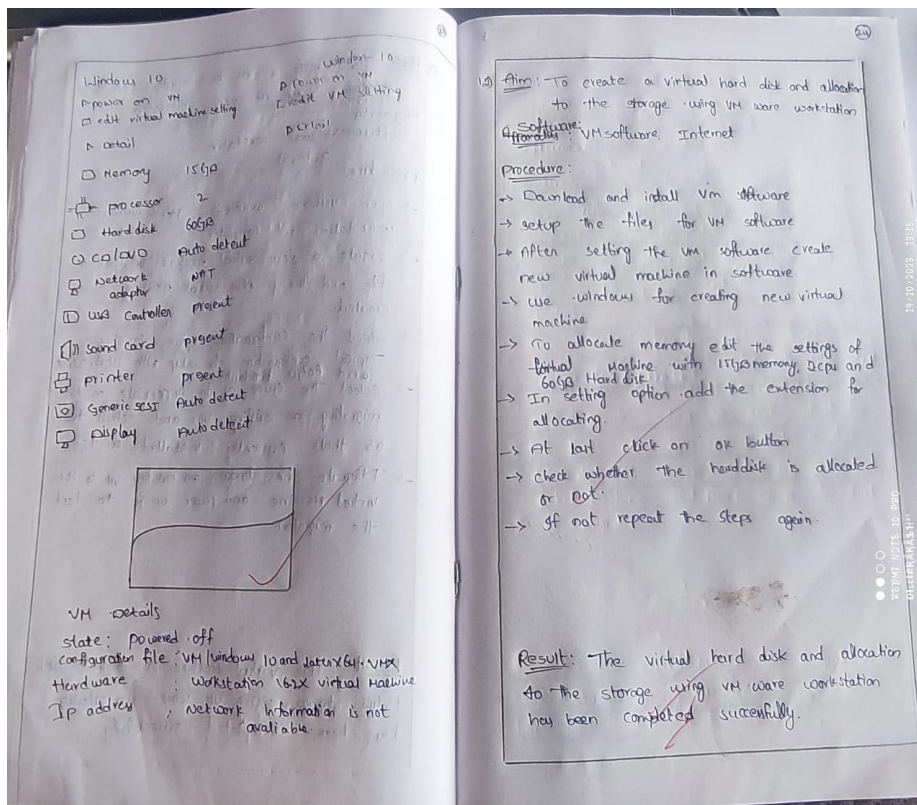 23
Window 10
▷ power on VM
□ edit virtual machine setting
▷ Detail
window - 10
▷ Power on VM
□ edit VM setting
▷ Detail
Memory 15GB
processor 2
Hard disk 60GB
Auto detect
Network NAT
adaptor
USB Controller present
Sound card present
printer present
Generic SCSI Auto detect
Display Auto detect
VM Details
state: powered off
configuration file: VM/window 10 and later X64.VMX
Hardware : Workstation 16.2X virtual Machine
Ip address : Network Information is not
avaliable.
24
Aim: To create a virtual hard disk and allocation
to the storage using VM ware workstation
Software:
Apparatus: VM software, Internet
Procedure:
→ Download and install Vm software
→ setup the files for VM software
→ After setting the VM software create
new virtual machine in software.
→ use windows for creating new virtual
machine
→ To allocate memory edit the settings of
Machine with 15GB memory, 2cpu and
60GB Hard disk
→ In setting option add the extension for
allocating.
→ At last click on ok button
→ check whether the harddisk is allocated
or not.
→ If not repeat the steps again.
Result: The virtual hard disk and allocation
to the storage using VM ware workstation
has been completed successfully.
REDMI NOTE 10 PRO
29/10/2023